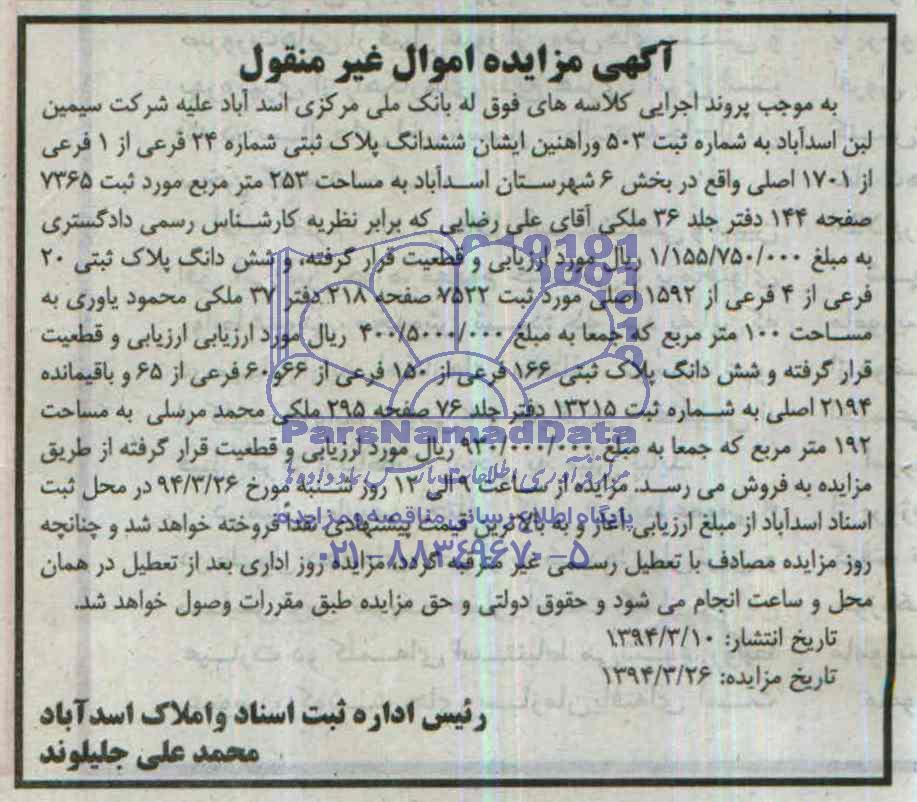 آگهی مزایده اموال غیر منقول
به موجب پروند اجرایی کلاسه های فوق له بانک ملی مرکزی اسد آباد علیه شرکت سیمین
لبن اسدآباد به شماره ثبت ۵۰۳ وراهنین ایشان ششدانگ پلاک ثبتی شماره ۲۴ فرعی از ۱ فرعی
از ۱۷۰۱ اصلی واقع در بخش ۶ شهرستان اسدآباد به مساحت ۲۵۳ متر مربع مورد ثبت ۷۳۶۵
صفحه ۱۴۴ دفتر جلد ۳۶ ملکی آقای علی رضایی که برابر نظریه کارشناس رسمی دادگستری
به مبلغ ۱/۱۵۵/۷۵۰/۰۰۰ ریال مورد ارزیابی و قطعیت قرار گرفته، و شش دانگ پلاک ثبتی ۲۰
فرعی از ۴ فرعی از ۱۵۹۲ اصلی مورد ثبت ۷۵۲۲ صفحه ۲۱۸ دفتر ۳۷ ملکی محمود یاوری به
مساحت ۱۰۰ متر مربع که جمعا به مبلغ ۴۰۰/۵۰۰۰/۰۰۰ ریال مورد ارزیابی ارزیابی و قطعیت
قرار گرفته و شش دانگ پلاک ثبتی ۱۶۶ فرعی از ۱۵۰ فرعی از ۶۶و۶۰ فرعی از ۶۵ و باقیمانده
۲۱۹۴ اصلی به شماره ثبت ۱۳۲۱۵ دفتر جلد ۷۶ صفحه ۲۹۵ ملکی محمد مرسلی به مساحت
۱۹۲ متر مربع که جمعا به مبلغ ۹۳۰/۰۰۰/۰۰۰ ریال مورد ارزیابی و قطعیت قرار گرفته از طریق
مزایده به فروش می رسد. مزایده از ساعت ۹ الی ۱۲ روز شنبه مورخ ۹۴/۳/۲۶ در محل ثبت
اسناد اسدآباد از مبلغ ارزیابی آغاز و به بالاترین قیمت پیشنهادی نقداً فروخته خواهد شد و چنانچه
روز مزایده مصادف با تعطیل رسمی غیر مترقبه گردد، مزایده روز اداری بعد از تعطیل در همان
محل و ساعت انجام می شود و حقوق دولتی و حق مزایده طبق مقررات وصول خواهد شد.
تاریخ انتشار: ۱۳۹۴/۳/۱۰
تاریخ مزایده: ۱۳۹۴/۳/۲۶
رئیس اداره ثبت اسناد واملاک اسدآباد
محمد علی جلیلوند
ParsNamadData
پایگاه اطلاع رسانی مناقصه و مزایده
۰۲۱-۸۸۳۴۹۶۷۰-۵